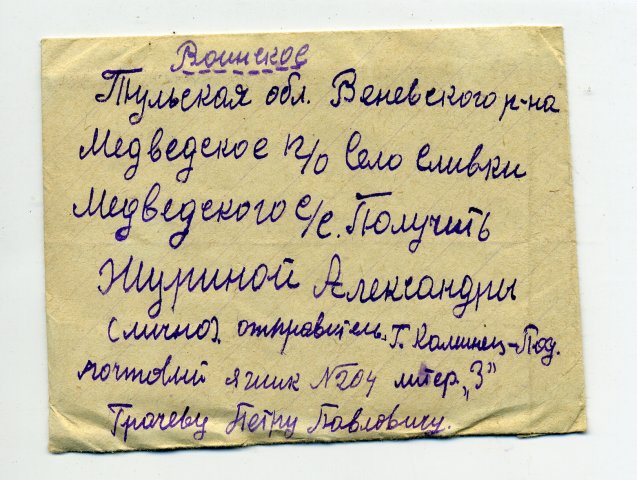 Воинское
Тульская обл. Веневского р-на
Медведское п/о Село Сливки
Медведского с/с. Получить
Журиной Александры
(лично). отправитель. Г. Каминец-Под.
почтовий ящик №204 литер „З"
Грачеву Петру Павловичу.